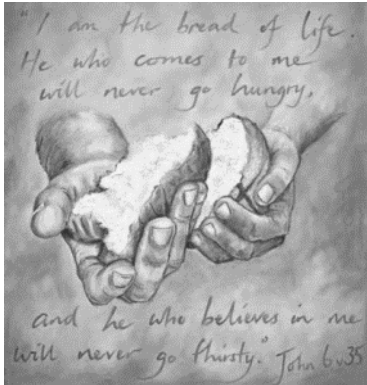 "I am the bread of life.
He who comes to me
will never go hungry,
and he who believes in me
will never go thirsty."
John 6 v 35